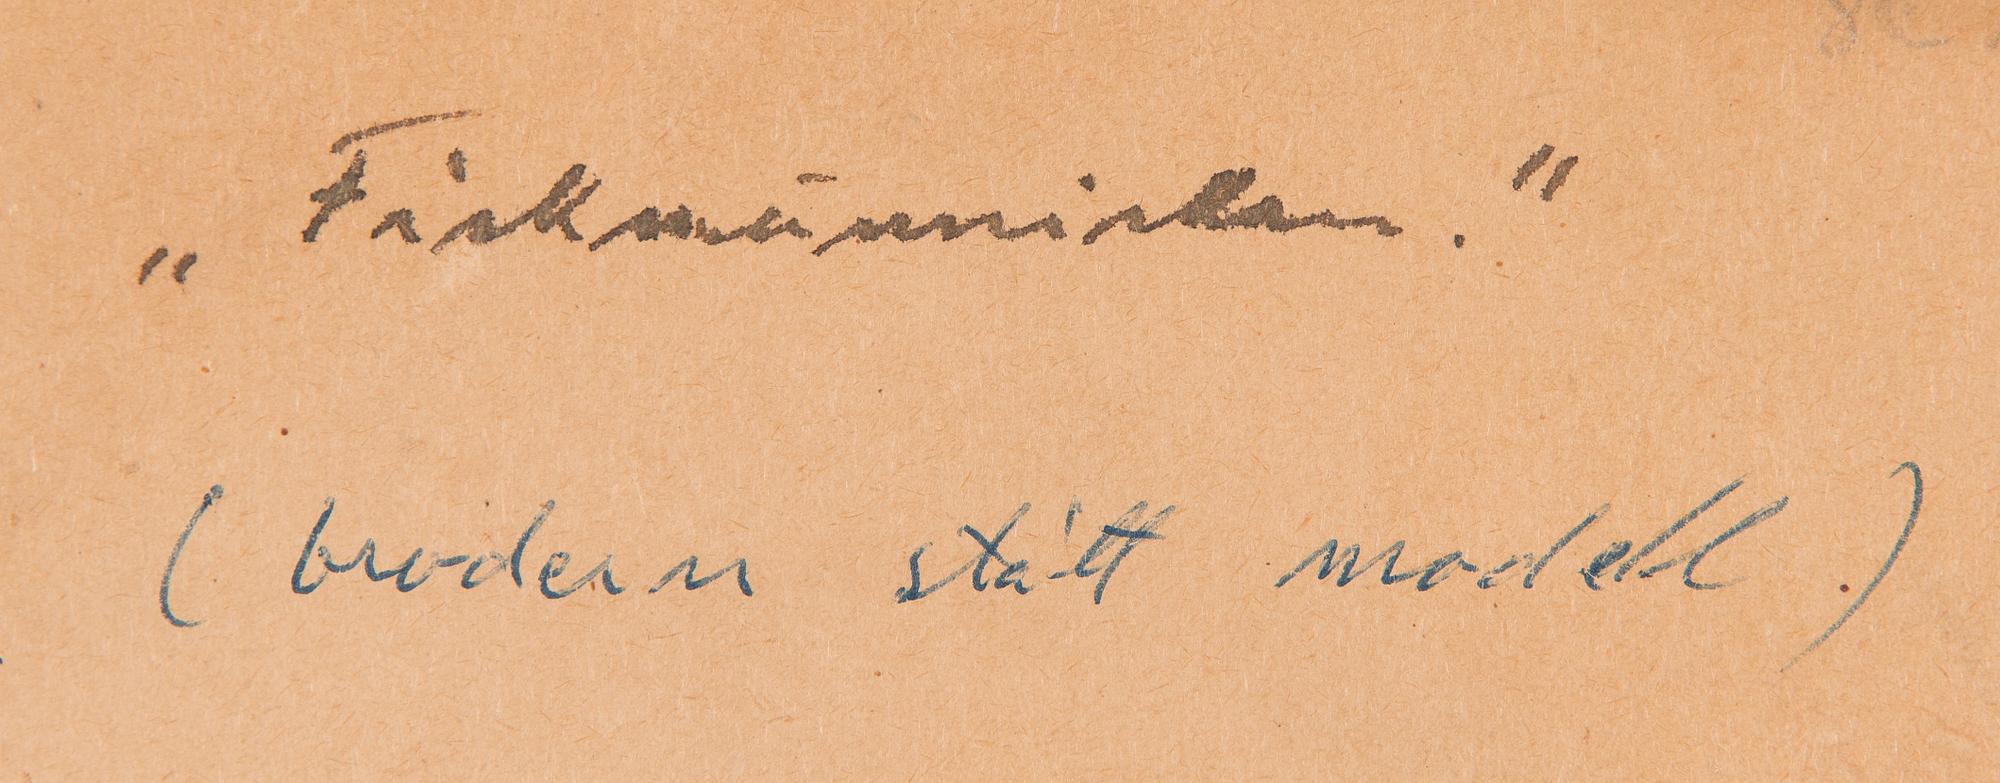 „Fiskmänniskan."
(brodern stått modell)